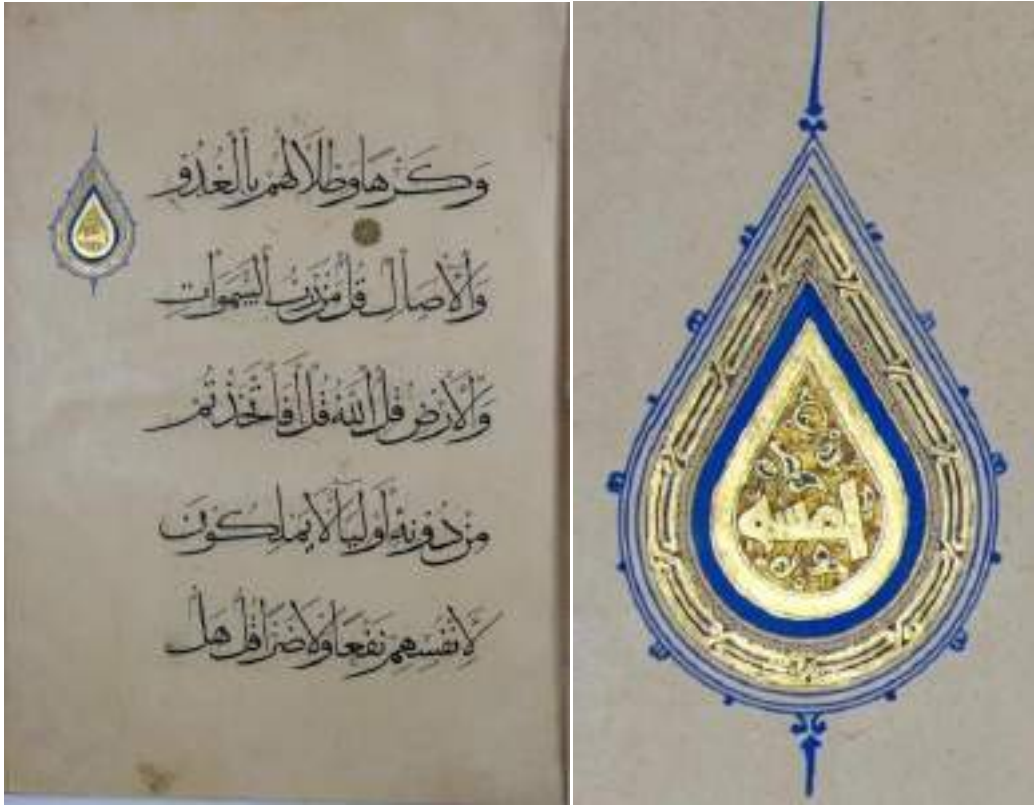 وَكَرْهًا وَظِلَالُهُمْ بِالْغُدُوِّ
وَالْأَصَالِ قُلْ مَنْ رَبُّ السَّمَوَاتِ
وَالْأَرْضِ قُلِ اللَّهُ قُلْ أَفَاتَّخَذْتُمْ
مِنْ دُونِهِ أَوْلِيَاءَ لَا يَمْلِكُونَ
لِأَنْفُسِهِمْ نَفْعًا وَلَا ضَرًّا قُلْ هَلْ